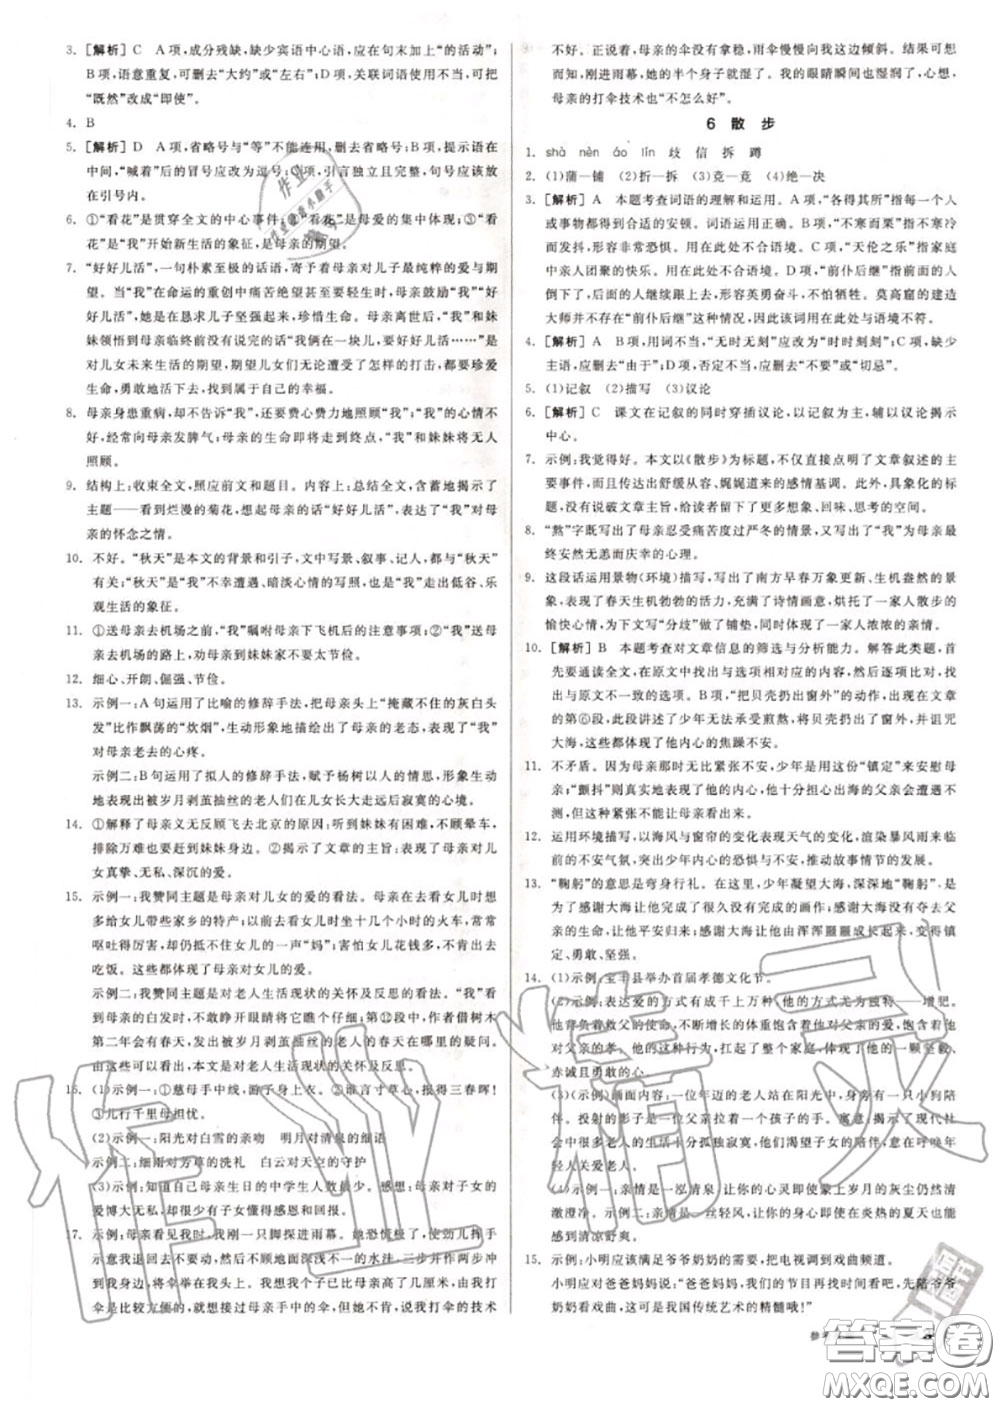 3. [解析] C　A项,成分残缺,缺少宾语中心语,应在句末加上“的活动”;
B项,语意重复,可删去“大约”或“左右”;D项,关联词语使用不当,可把
“既然”改成“即使”。
4. B
5. [解析] D　A项,省略号与“等”不能连用,B项,省略号应放在
中间,“喊着”后的冒号应改为逗号;C项,引言独立且完整,句号应该放
在引号内。
6. ①“看花”是贯穿全文的中心事件;②“看花”是母爱的集中体现;③“看
花”是“我”开始新生活的象征,是母亲的期望。
7. “好好儿活”,一句朴素至极的话语,寄予着母亲对儿子最纯粹的爱与期
望。当“我”在命运的重创中痛苦绝望甚至要轻生时,母亲鼓励“我”“好
好儿活”,她是在恳求儿子坚强起来,珍惜生命。母亲离世后,“我”和妹
妹领悟到母亲临终前没有说完的话“我俩在一块儿,要好好儿活……”是
对儿女未来生活的期望,期望儿女们无论遭受了怎样的打击,都要珍爱
生命,勇敢地活下去,找到属于自己的幸福。
8. 母亲身患重病,却不告诉“我”,还要费心费力地照顾“我”;“我”的心情不
好,经常向母亲发脾气;母亲的生命即将走到终点,“我”和妹妹将无人
照顾。
9. 结构上:收束全文,照应前文和题目。内容上:总结全文,含蓄地揭示了
主题——看到烂漫的菊花,想起母亲的话“好好儿活”,表达了“我”对母
亲的怀念之情。
10. 不好。“秋天”是本文的背景和引子,文中写景、叙事、记人,都与“秋天”
有关;“秋天”是“我”不幸遭遇、暗淡心情的写照,也是“我”走出低谷、乐
观生活的象征。
11. ①送母亲去机场之前,“我”嘱咐母亲下飞机后的注意事项;②“我”送母
亲去机场的路上,劝母亲到妹妹家不要过于节俭。
12. 细心、开朗、倔强、节俭。
13. 示例一:A句运用了比喻的修辞手法,把母亲头上“掩藏不住的灰白头
发”比作飘荡的“炊烟”,生动形象地描绘出了母亲的老态,表现了“我”对
母亲老去的心疼。
示例二:B句运用了拟人的修辞手法,赋予杨树以人的情思,形象生动
地表现出被岁月剥茧抽丝的老人们在儿女长大走远后寂寞的心境。
14. ①解释了母亲义无反顾飞去北京的原因:听到妹妹有困难,不顾晕车,
排除万难也要到妹妹身边。②揭示了文章的主旨:表现了母亲对儿
女真挚、无私、深沉的爱。
15. 示例一:我赞同主题是母亲对儿女的爱的看法。母亲在去看儿女时想
多给女儿带些家乡的特产;以前去看女儿时坐十几个小时的火车,常常
呕吐得厉害,却可以换来女儿的一声“妈”;害怕女儿花钱多,不愿出去
吃饭。这些都体现了母亲对女儿的爱。
示例二:我赞同主题是对老人生活现状的关怀及反思的看法。“我”看
到母亲的白发时,不敢睁开眼睛将它瞧个仔细;第⑫段中,作者借树木
第二年会有春天,发出被岁月剥茧抽丝的老人的春天在哪里的疑问。
由此可以看出,本文是对老人生活现状的关怀及反思。
16. (1)示例一:①慈母手中线,游子身上衣。②谁言寸草心,报得三春晖!
③儿行千里母担忧。
(2)示例一:阳光对白雪的亲吻　明月对清泉的细语
示例二:细雨对芳草的洗礼　白云对天空的守护
(3)示例:知道母亲生日的中学生人数偏少。感想:母亲对子女的
爱博大无私,可是却少有子女懂得感恩和回报。
17. 示例:母亲看见我时,我刚一只脚探进雨幕。她恐慌极了,使劲儿挥手
示意我退回去,然后,顾不得满院深深浅浅的水洼,三步并作两步冲了
过来,将伞举在我头上。我已经比母亲高了几厘米,由我打伞,也
许比较合适。我接过母亲手中的伞,但她不肯,说我打伞的技术
不好。正说着,母亲的伞没有拿稳,雨伞慢慢向我这边倾斜。结果可想
而知,刚进雨幕,她的半个身子就湿了。我的眼睛瞬间也湿润了,心想,
母亲的打伞技术也“不怎么好”。
6　散　步
1. shà　nèn　áo　lín　歧　信　拆　蹲
2. (1)蒲—铺　(2)折—拆　(3)竞—竟　(4)绝—决
3. [解析] A　本题考查词语的理解和运用。A项,“各得其所”指每一个人
或事物都得到合适的安顿。词语运用正确。B项,“不寒而栗”指不寒冷
而发抖,形容非常恐惧。用在此处不合语境。C项,“天伦之乐”指家庭
中亲人团聚的快乐。用在此处不合语境。D项,“前仆后继”指前面的人
倒下了,后面的人继续跟上去,形容英勇奋斗,不怕牺牲。莫高窟的建造
大师并不存在“前仆后继”这种情况,因此该词用在此处与语境不符。
4. [解析] A　B项,用词不当,“无时无刻”应改为“时时刻刻”;C项,缺少
主语,应删去“通过”;D项,否定不当,应删去“不要”或“切忌”。
5. (1)记叙　(2)描写　(3)议论
6. [解析] C　课文在记叙的同时穿插议论,以记叙为主,辅以议论揭示
中心。
7. 示例:我觉得好。本文以《散步》为标题,不仅直接点明了文章叙述的主
要事件,而且传达出舒缓从容、娓娓道来的感情基调。此外,具象化的标
题没有点明文章的主旨,给读者留下了更多想象、回味、思考的空间。
8. “熬”字既写出了母亲忍受痛苦度过严冬的情景,又写出了“我”为母亲
最终安然无恙而庆幸的心理。
9. 这段话运用景物(环境)描写,写出了南方早春万象更新、生机盎然的景
象,表现了春天生机勃勃的活力,充满了诗情画意,烘托了一家人散步的
愉快心情,为下文写“分歧”做了铺垫,也写出了一家人浓浓的亲情。
10. [解析] B　本题考查对文章信息的筛选与分析能力。解答此类题,首
先要通读全文,在原文中找出与选项相对应的文字,仔细比对,找出与
原文不一致的选项。B项,“把贝壳扔出窗外”的动作,出现在文章
的第⑥段,此段讲述了少年无法承受煎熬,将贝壳扔出窗外,并诅咒
大海,这些都体现了他内心的焦躁不安。
11. 不矛盾。因为母亲那时无比紧张不安,少年是用这份“镇定”来安慰母
亲;“颤抖”则真实地表现了他的内心,他同样担心出海的父亲会遭遇不
测,但这种紧张不能让母亲看出来。
12. 运用环境描写,以海风与窗帘的变化表现天气的变化,渲染暴风雨来临
前的不安气氛,突出少年内心的恐惧与不安,推动故事情节的发展。
13. “鞠躬”的意思是弯身行礼。在这里,少年凝望大海,深深地“鞠躬”,是
为了感谢大海让他完成了很久没有完成的画作;感谢大海没有夺去父
亲的生命,让他平安归来;感谢大海让他由浑浑噩噩成长起来,变得坚
定、勇敢、坚强。
14. (1)示例:宝丰县举办首届孝德文化节。
(2)示例:表达爱的方式有成千上万种,他的方式尤为独特——增肥。
他背负着救父的使命,不断增长的体重饱含着他对父亲的爱,饱含着他
对父亲的孝。他的这种行为,打动了整个家庭,也体现了他的一颗
赤诚且勇敢的心。
(3)示例:画面内容:一位年迈的老人坐在阳光中,身旁有一只小狗陪
伴。投射的影子是一位父亲拉着一个孩子的手。寓意:反映了现代社会
很多老人的生活十分孤独寂寞,他们渴望子女的陪伴,意在呼唤年
轻人关爱老人。
(4)示例一:亲情是一泓清泉,让你的心灵即使蒙上岁月的灰尘仍然
清澈澄净。示例二:亲情是一丝轻风,让你的身心在炎热的夏天也
享受清凉。
15. 示例:小明应该满足爷爷奶奶的需要,把电视调到戏曲频道。
小明应对爸爸妈妈说:“爸爸妈妈,我们的节目再找时间看吧,先陪爷爷
奶奶看戏曲,这可是我国传统艺术的精髓哦!”
作业精灵
答案圈
MXQE.COM